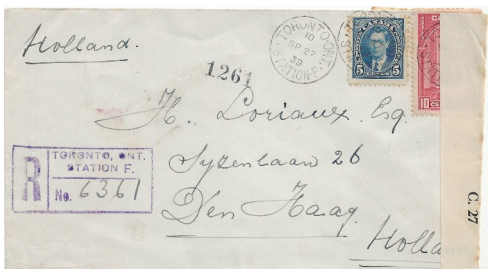 Holland.
TORONTO, ONT.
10
SP 27
39
STATION F.
1261
5 5
10 CE
H. Loriaux Esq.
Syzenlaan 26
Den Haag
Holland
R
TORONTO, ONT.
STATION F.
No. 6361
C. 27